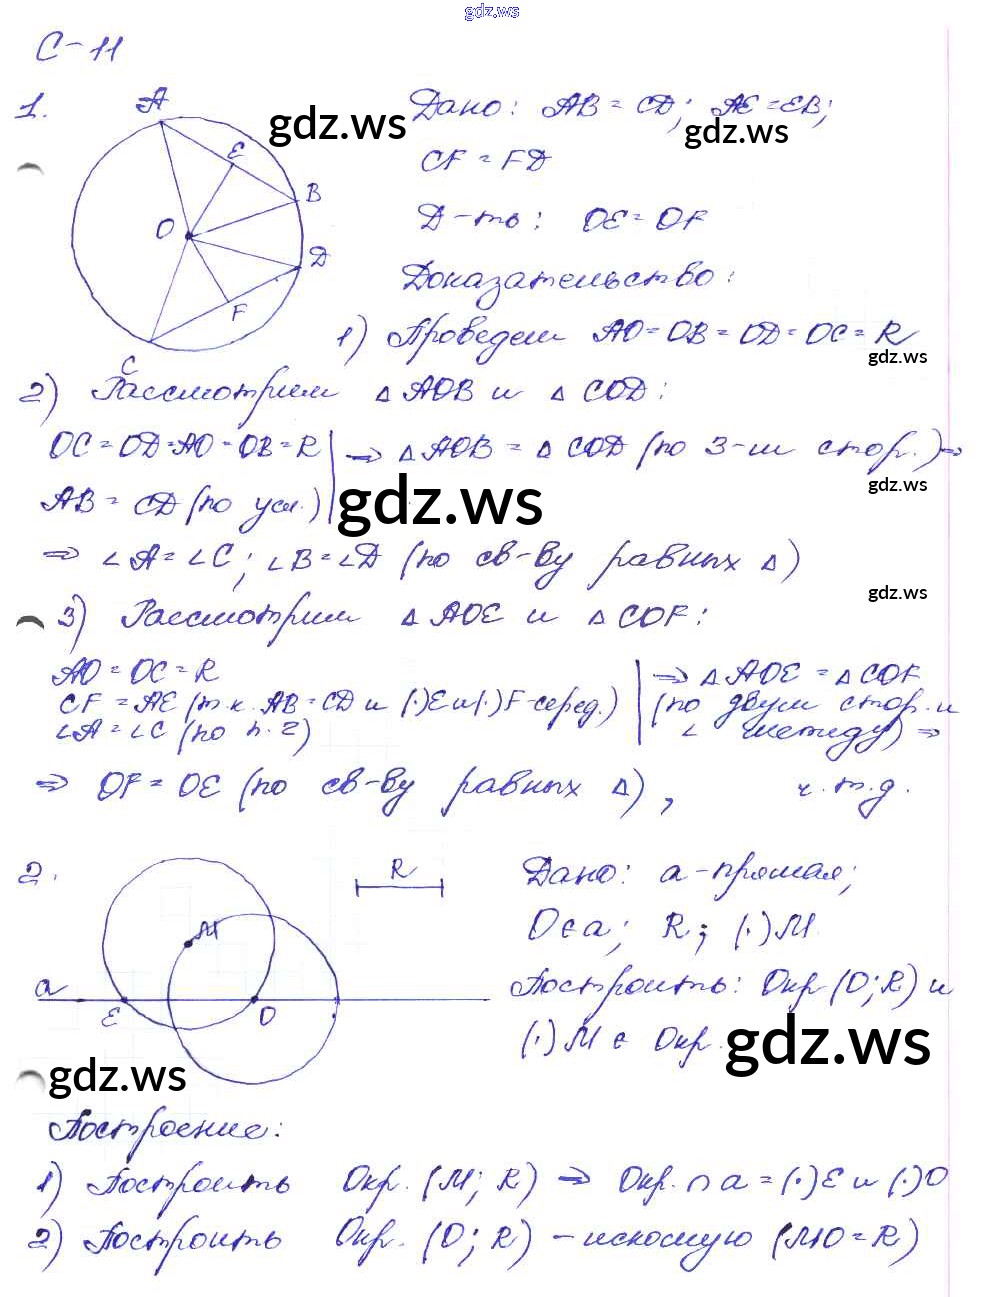 gdz.ws
С-11
1.
A
E
B
O
D
F
C
Дано: AB = CD; AE = EB;
CF = FD
Д-ть: OE = OF
Доказательство:
1) Проведем AO = OB = OD = OC = R
2) Рассмотрим △ AOB и △ COD:
OC = OD = AO = OB = R | ⇒ △ AOB = △ COD (по 3-м стор.) ⇒
AB = CD (по усл.)
⇒ ∠A = ∠C; ∠B = ∠D (по св-ву равных △)
3) Рассмотрим △ AOE и △ COF:
AO = OC = R | ⇒ △ AOE = △ COF
CF = AE (т.к. AB = CD и (·)E и (·)F-серед.) | (по двум стор. и
∠A = ∠C (по п. 2) | ∠ между) ⇒
⇒ OF = OE (по св-ву равных △), ч.т.д.
2.
R
M
a
E
O
Дано: a - прямая;
O ∈ a; R; (·) M.
Построить: Окр (O; R) и
(·) M ∈ Окр.
Построение:
1) Построить Окр. (M; R) ⇒ Окр. ∩ a = (·) E и (·) O
2) Построить Окр. (O; R) - искомую (MO = R)
gdz.ws
gdz.ws
gdz.ws
gdz.ws
gdz.ws
gdz.ws
gdz.ws
gdz.ws